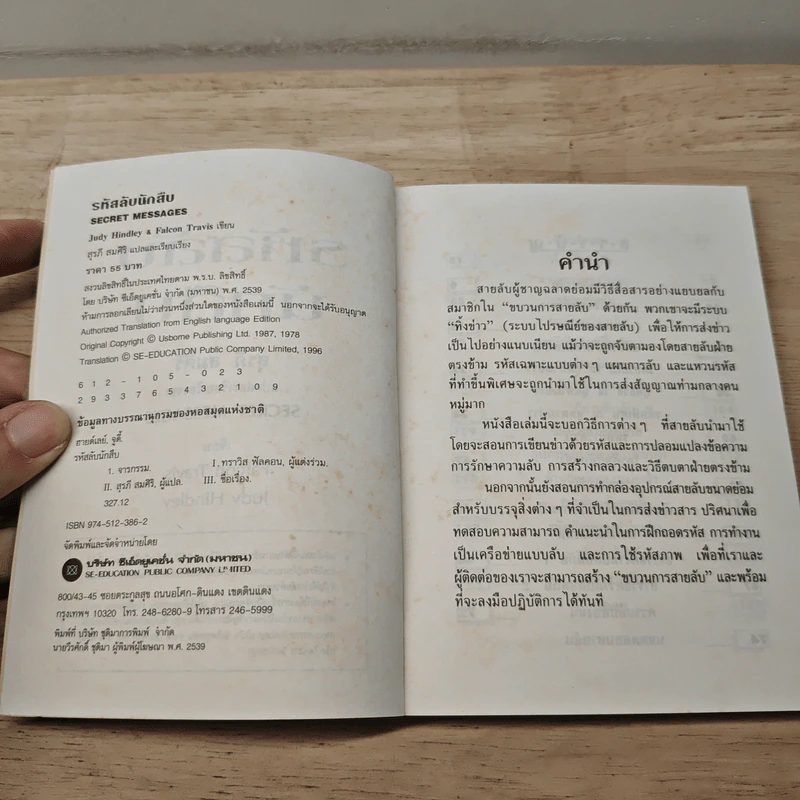 รหัสลับนักสืบ
SECRET MESSAGES
Judy Hindley & Falcon Travis เขียน
สุรภี สมศิริ แปลและเรียบเรียง
ราคา 55 บาท
สงวนลิขสิทธิ์ในประเทศไทยตาม พ.ร.บ. ลิขสิทธิ์
โดย บริษัท ซีเอ็ดยูเคชั่น จำกัด (มหาชน) พ.ศ. 2539
ห้ามการลอกเลียนไม่ว่าส่วนหนึ่งส่วนใดของหนังสือเล่มนี้ นอกจากจะได้รับอนุญาต
Authorized Translation from English language Edition
Original Copyright © Usborne Publishing Ltd. 1987, 1978
Translation © SE-EDUCATION Public Company Limited, 1996
6 1 2 - 1 0 5 - 0 2 3
2 9 3 3 7 6 5 4 3 2 1 0 9
ข้อมูลทางบรรณานุกรมของหอสมุดแห่งชาติ
ฮายด์เลย์, จูดี้.
รหัสลับนักสืบ
1. จารกรรม. I. ทราวิส ฟัลคอน, ผู้แต่งร่วม.
II. สุรภี สมศิริ, ผู้แปล. III. ชื่อเรื่อง.
327.12
ISBN 974-512-386-2
จัดพิมพ์และจัดจำหน่ายโดย
บริษัท ซีเอ็ดยูเคชั่น จำกัด (มหาชน)
SE-EDUCATION PUBLIC COMPANY LIMITED
800/43-45 ซอยตระกูลสุข ถนนอโศก-ดินแดง เขตดินแดง
กรุงเทพฯ 10320 โทร. 248-6280-9 โทรสาร 246-5999
พิมพ์ที่ บริษัท ชุติมาการพิมพ์ จำกัด
นายวีรศักดิ์ ชุติมา ผู้พิมพ์ผู้โฆษณา พ.ศ. 2539
คำนำ
สายลับผู้ชาญฉลาดย่อมมีวิธีสื่อสารอย่างแยบยลกับ
สมาชิกใน “ขบวนการสายลับ” ด้วยกัน พวกเขาจะมีระบบ
“ทิ้งข่าว” (ระบบไปรษณีย์ของสายลับ) เพื่อให้การส่งข่าว
เป็นไปอย่างแนบเนียน แม้ว่าจะถูกจับตามองโดยสายลับฝ่าย
ตรงข้าม รหัสเฉพาะแบบต่าง ๆ แผนการลับ และแหวนรหัส
ที่ทำขึ้นพิเศษจะถูกนำมาใช้ในการส่งสัญญาณท่ามกลางคน
หมู่มาก
หนังสือเล่มนี้จะบอกวิธีการต่าง ๆ ที่สายลับนำมาใช้
โดยจะสอนการเขียนข่าวด้วยรหัสและการปลอมแปลงข้อความ
การรักษาความลับ การสร้างกลลวงและวิธีตบตาฝ่ายตรงข้าม
นอกจากนั้นยังสอนการทำกล่องอุปกรณ์สายลับขนาดย่อม
สำหรับบรรจุสิ่งต่าง ๆ ที่จำเป็นในการส่งข่าวสาร ปริศนาเพื่อ
ทดสอบความสามารถ คำแนะนำในการฝึกถอดรหัส การทำงาน
เป็นเครือข่ายแบบลับ และการใช้รหัสภาพ เพื่อที่เราและ
ผู้ติดต่อของเราจะสามารถสร้าง “ขบวนการสายลับ” และพร้อม
ที่จะลงมือปฏิบัติการได้ทันที